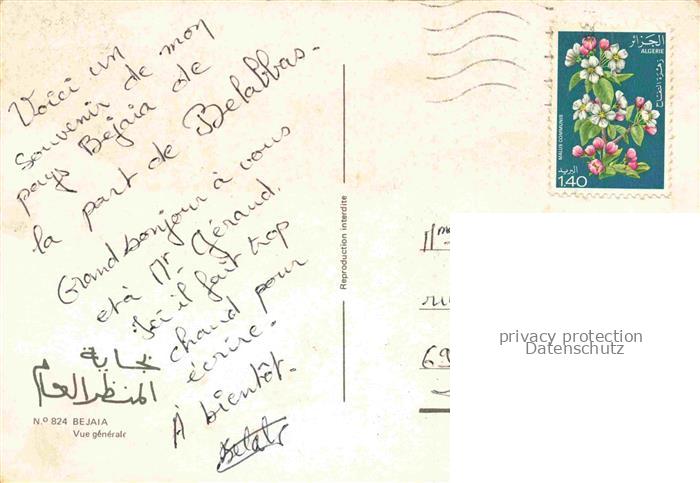 Voici un
souvenir de mon
pays Bejaia de
la part de Belabbas.
Grand bonjour à vous
et à Mr Gérard.
Ici il fait trop
chaud pour
écrire.
A bientôt.
بجاية
المنظر العام
N.º 824 BEJAIA
Vue générale
Reproduction interdite
الجزائر
ALGERIE
زهرة التفاح
MALUS COMMUNIS
البريد
1.40
69
privacy protection
Datenschutz